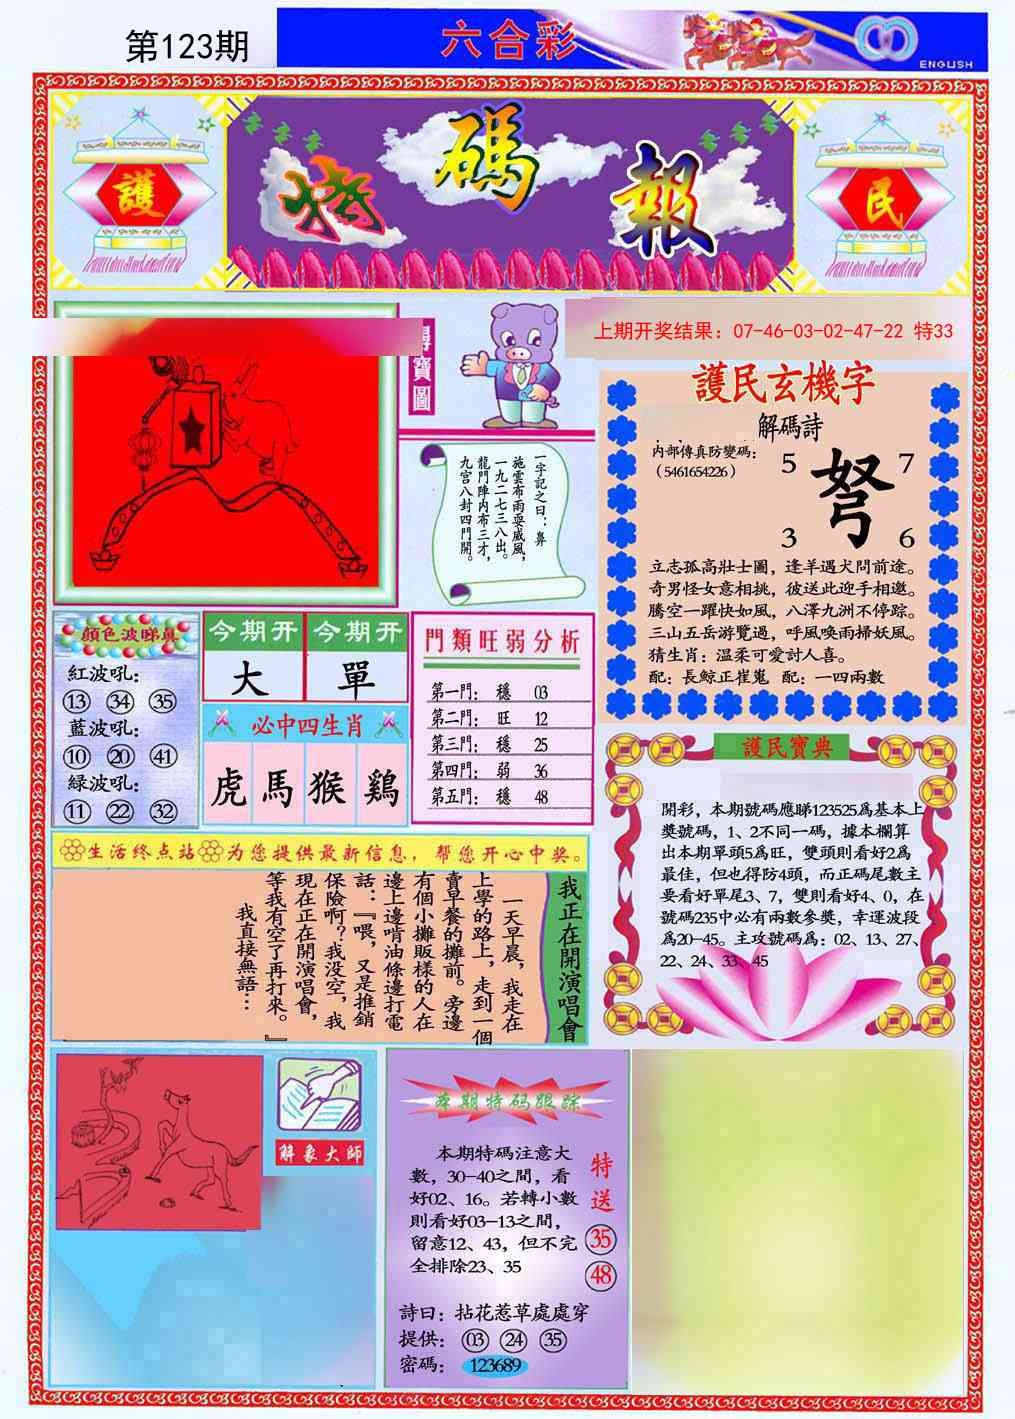 第123期
六合彩
ENGLISH
護
特碼報
民
尋寶圖
上期开奖结果：07-46-03-02-47-22 特33
一字記之曰：鼻
施雲布雨耍威風，
一九二七三八出。
龍門陣内布三才，
九宫八封四門開。
護民玄機字
解碼詩
内部傳真防變碼：
（5461654226）
5 7
弩
3 6
立志孤高壯士圖，逢羊遇犬問前途。
奇男怪女意相挑，彼送此迎手相邀。
騰空一躍快如風，八澤九洲不停踪。
三山五岳游覽過，呼風唤雨掃妖風。
猜生肖：温柔可愛討人喜。
配：長鯨正崔嵬 配：一四兩數
顔色波睇真
紅波吼：
13 34 35
藍波吼：
10 20 41
緑波吼：
11 22 32
今期开 今期开
大 單
必中四生肖
虎 馬 猴 鷄
門類旺弱分析
第一門： 穩 03
第二門： 旺 12
第三門： 穩 25
第四門： 弱 36
第五門： 穩 48
護民寶典
開彩，本期號碼應睇123525爲基本上
獎號碼，1、2不同一碼，據本欄算
出本期單頭5爲旺，雙頭則看好2爲
最佳，但也得防4頭，而正碼尾數主
要看好單尾3、7，雙則看好4、0，在
號碼235中必有兩數參獎，幸運波段
爲20-45。主攻號碼爲：02、13、27、
22、24、33、45
生活终点站 为您提供最新信息，帮您开心中奖。
我正在開演唱會
一天早晨，我走在
上學的路上，走到一個
賣早餐的攤前。旁邊
有個小攤販樣的人在
邊上邊啃油條邊打電
話：『喂，又是推銷
保險啊？我没空，我
現在正在開演唱會，
等我有空了再打來。』
我直接無語…
解象大師
本期特码跟踪
本期特碼注意大
數，30-40之間，看
好02、16。若轉小數
則看好03-13之間，
留意12、43，但不完
全排除23、35
特送
35
48
詩曰：拈花惹草處處穿
提供： 03 24 35
密碼： 123689